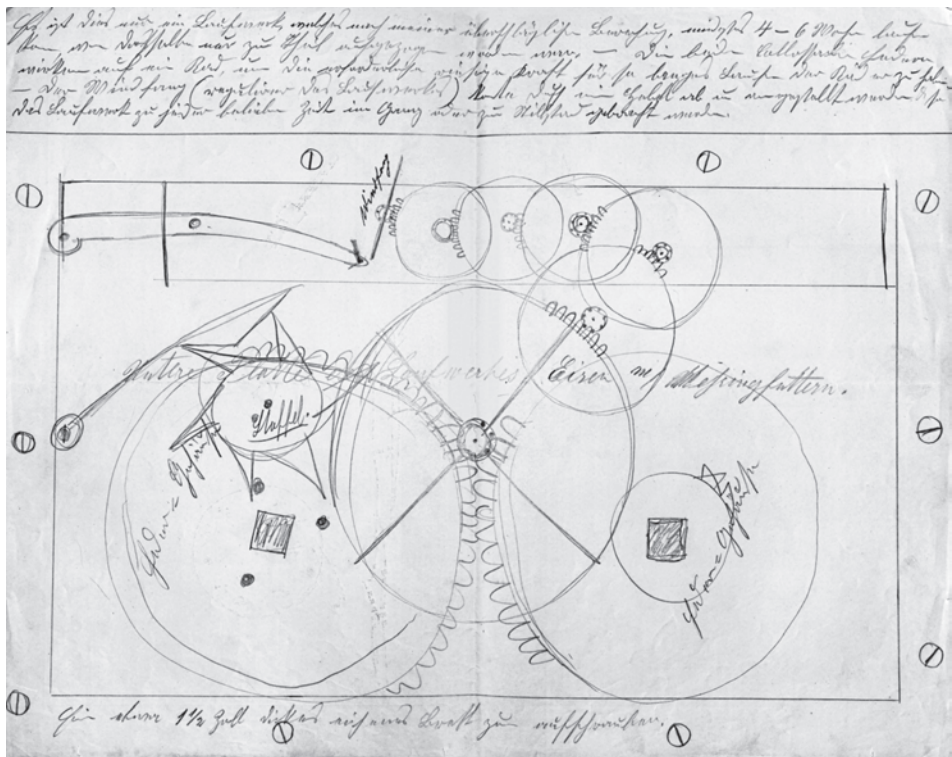 Es ist dies nur ein Laufwerk, welches nach meiner überschläglichen Berechnung, mindstes 4 – 6 Wochen laufen
kann, wen dasselbe nur zu Theil aufgezogen worden wäre. — Die beiden kollossalen Federn
wirken auf ein Rad, um die erforderliche riesige Kraft für so langes Laufen der Räder zu
– Der Windfang (regulierer des Laufwerkes) kann durch ein Hebel ab u. angestellt werden
das Laufwerk zu jeder belieben Zeit im Gang oder zu Stilstad gebracht werden.
Windfang
Platte des Laufwerkes Eisen m/ Messingfuttern.
Staffel.
Feder=Gehäuse
Feder=Gehäuse
Ein etwa 1½ Zoll dickes eichenes Brett zum aufschrauben.